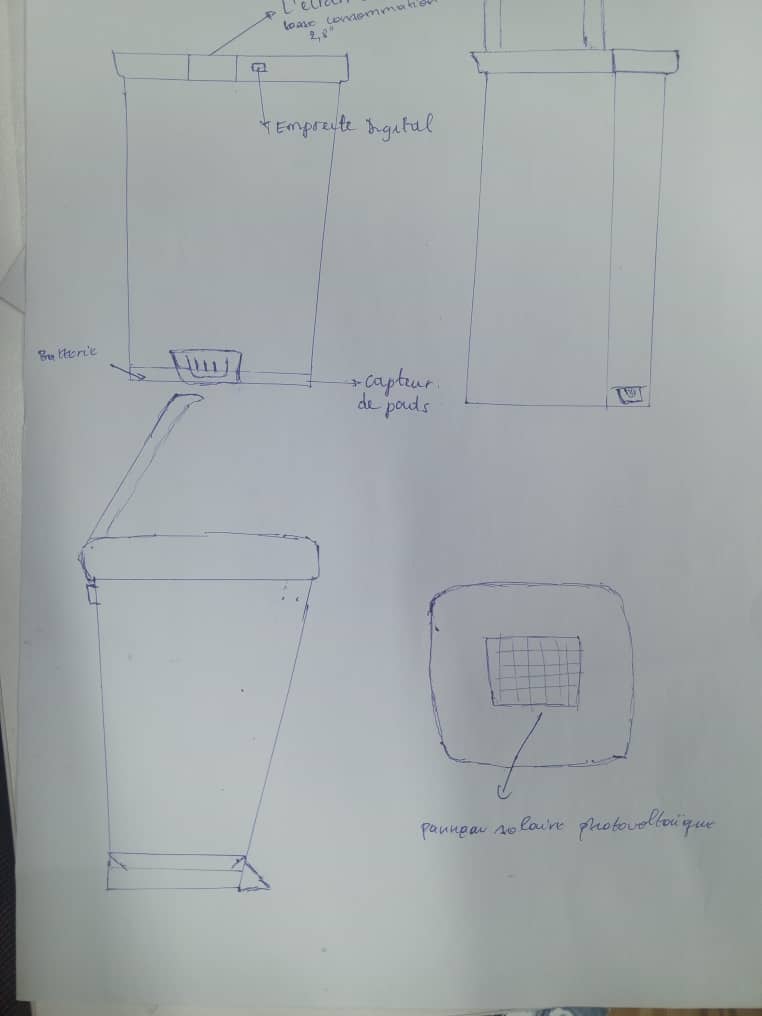 L'écran
basse consommation
2,8"
Empreite Digital
Batterie
Capteur
de poids
panneau solaire photovoltaïque